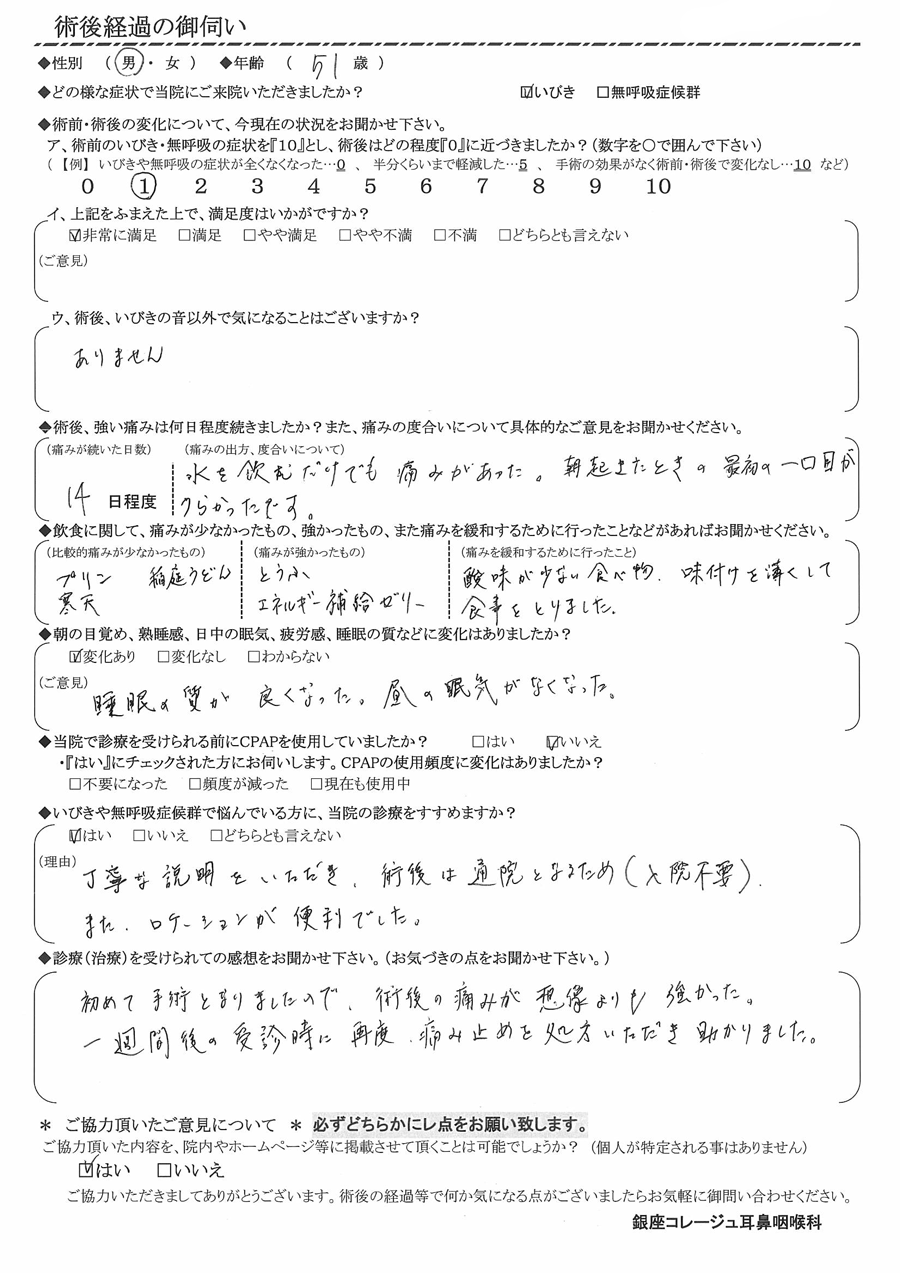 術後経過の御伺い
◆性別 （ 男 ・ 女 ） ◆年齢 （ 51 歳 ）
◆どの様な症状で当院にご来院いただきましたか？ ☑いびき □無呼吸症候群
◆術前・術後の変化について、今現在の状況をお聞かせ下さい。
ア、術前のいびき・無呼吸の症状を『10』とし、術後はどの程度『0』に近づきましたか？（数字を〇で囲んで下さい）
（【例】 いびきや無呼吸の症状が全くなくなった…0 、 半分くらいまで軽減した…5 、 手術の効果がなく術前・術後で変化なし…10 など）
0 ① 2 3 4 5 6 7 8 9 10
イ、上記をふまえた上で、満足度はいかがですか？
☑非常に満足 □満足 □やや満足 □やや不満 □不満 □どちらとも言えない
（ご意見）
ウ、術後、いびきの音以外で気になることはございますか？
ありません
◆術後、強い痛みは何日程度続きましたか？また、痛みの度合いについて具体的なご意見をお聞かせください。
（痛みが続いた日数） （痛みの出方、度合いについて）
水を飲むだけでも痛みがあった。朝起きたときの最初の一口目が
14 日程度 つらかったです。
◆飲食に関して、痛みが少なかったもの、強かったもの、また痛みを緩和するために行ったことなどがあればお聞かせください。
（比較的痛みが少なかったもの） （痛みが強かったもの） （痛みを緩和するために行ったこと）
プリン 稲庭うどん とうふ 酸味が少ない食べ物、味付けを薄くして
寒天 エネルギー補給ゼリー 食事をとりました。
◆朝の目覚め、熟睡感、日中の眠気、疲労感、睡眠の質などに変化はありましたか？
☑変化あり □変化なし □わからない
（ご意見）
睡眠の質が良くなった。昼の眠気がなくなった。
◆当院で診療を受けられる前にCPAPを使用していましたか？ □はい ☑いいえ
・『はい』にチェックされた方にお伺いします。CPAPの使用頻度に変化はありましたか？
□不要になった □頻度が減った □現在も使用中
◆いびきや無呼吸症候群で悩んでいる方に、当院の診療をすすめますか？
☑はい □いいえ □どちらとも言えない
（理由）
丁寧な説明をいただき、術後は通院となるため（入院不要）.
また、ロケーションが便利でした。
◆診療（治療）を受けられての感想をお聞かせ下さい。（お気づきの点をお聞かせ下さい。）
初めて手術となりましたので、術後の痛みが想像よりも強かった。
一週間後の受診時に再度、痛み止めを処方いただき助かりました。
＊ ご協力頂いたご意見について ＊ 必ずどちらかにレ点をお願い致します。
ご協力頂いた内容を、院内やホームページ等に掲載させて頂くことは可能でしょうか？（個人が特定される事はありません）
☑はい □いいえ
ご協力いただきましてありがとうございます。術後の経過等で何か気になる点がございましたらお気軽に御問い合わせください。
銀座コレージュ耳鼻咽喉科